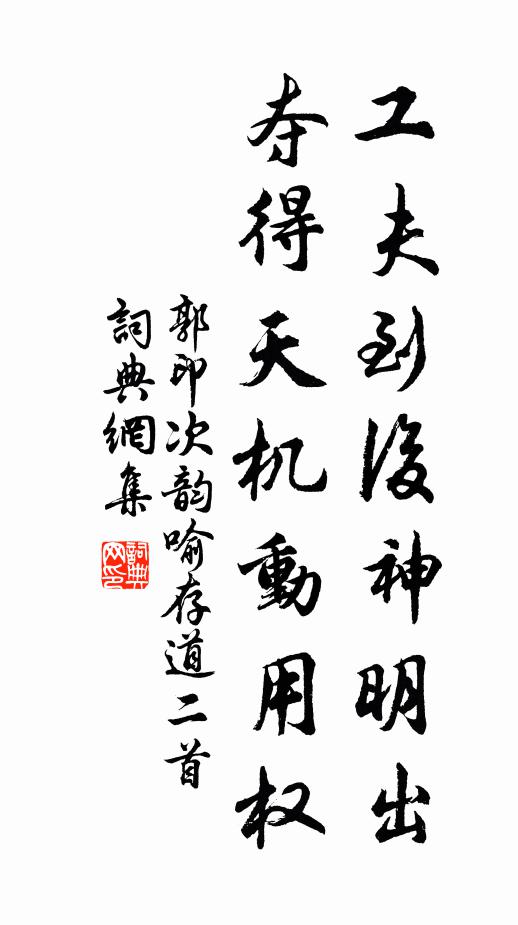 工夫到後神明出
夺得天机動用权
郭印次韵喻存道二首
詞典網集
詞典网印